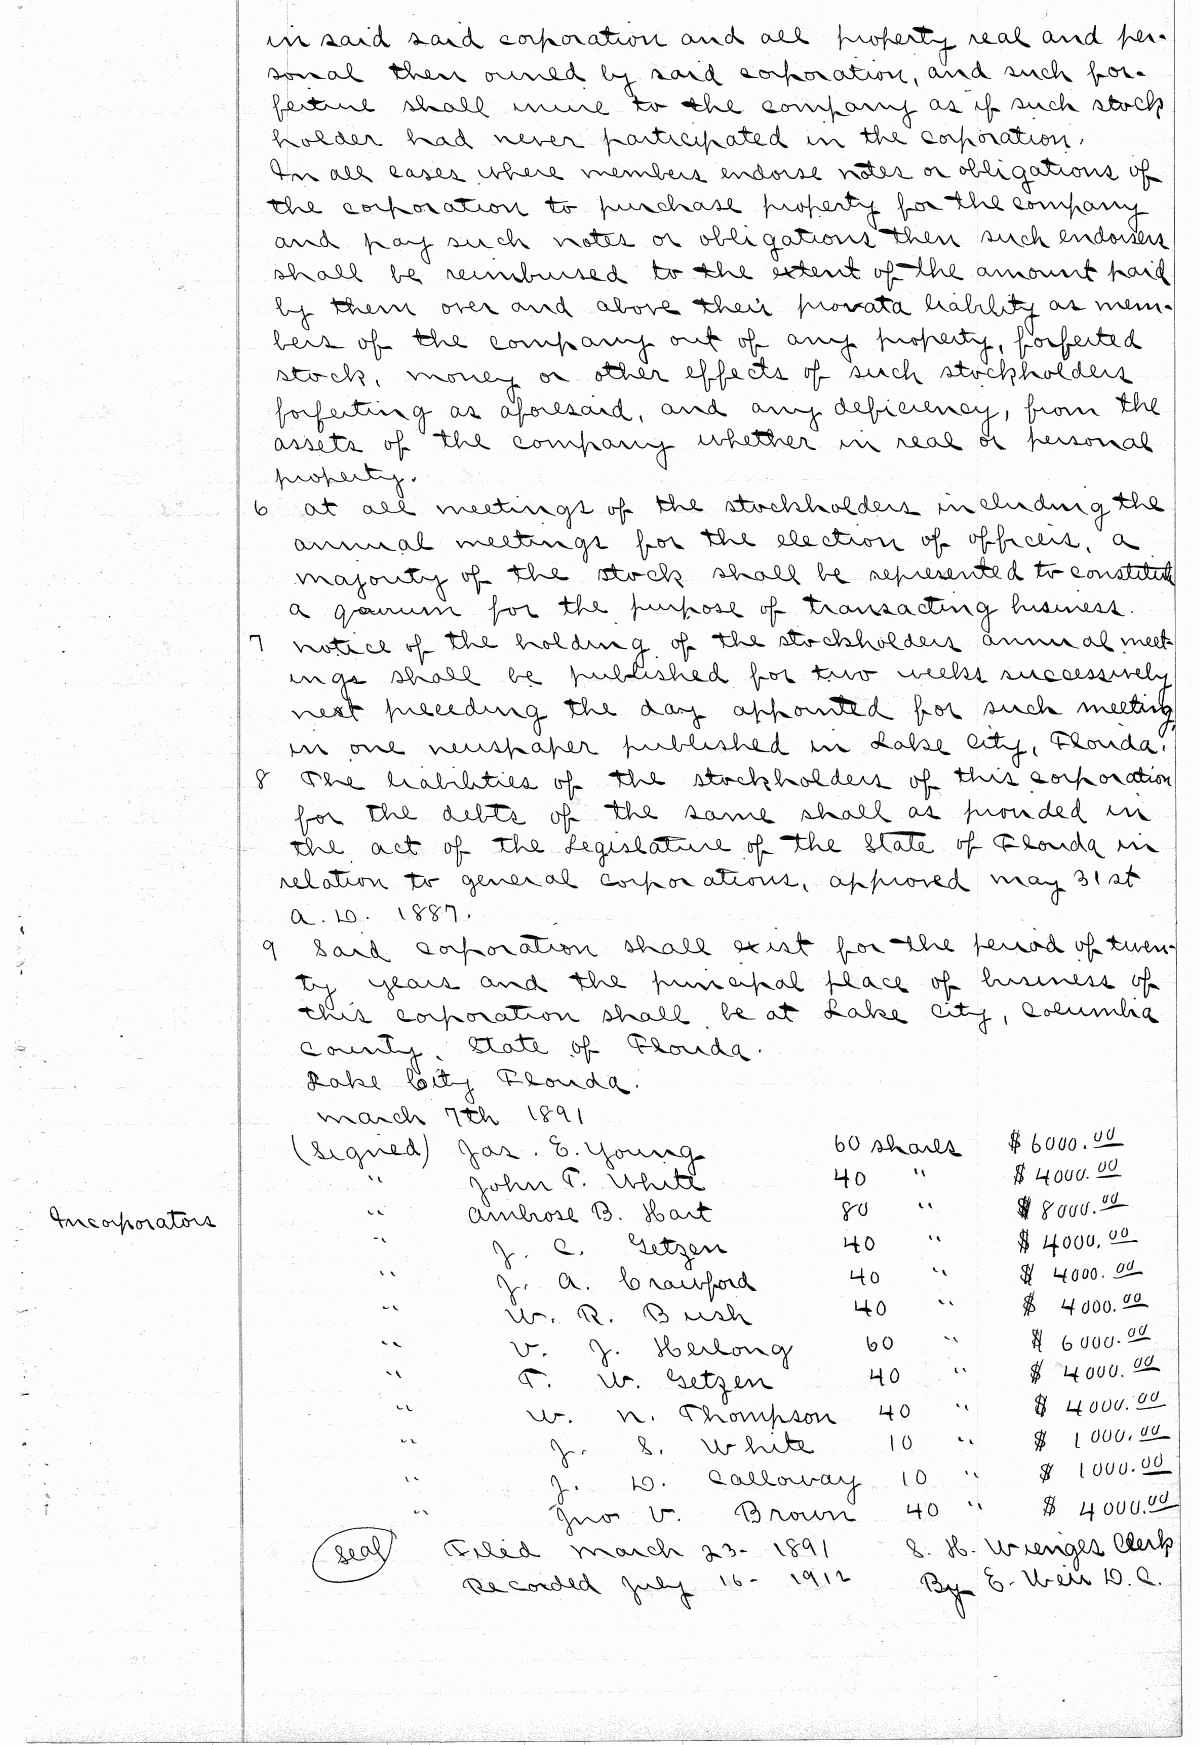 in said said corporation and all property real and per-
sonal then owned by said corporation, and such for-
feiture shall inure to the company as if such stock
holder had never participated in the corporation.
In all cases where members endorse notes or obligations of
the corporation to purchase property for the company
and pay such notes or obligations then such endorsers
shall be reimbursed to the extent of the amount paid
by them over and above their prorata liability as mem-
bers of the company out of any property, forfeited
stock, money or other effects of such stockholders
forfeiting as aforesaid, and any deficiency, from the
assets of the company whether in real or personal
property.
6 at all meetings of the stockholders including the
annual meetings for the election of officers, a
majority of the stock shall be represented to constitute
a quorum for the purpose of transacting business.
7 notice of the holding of the stockholders annual meet-
ings shall be published for two weeks successively
next preceding the day appointed for such meeting
in one newspaper published in Lake City, Florida.
8 The liabilities of the stockholders of this corporation
for the debts of the same shall as provided in
the act of the Legislature of the State of Florida in
relation to general corporations, approved may 31st
a.D. 1887.
9 Said corporation shall exist for the period of twen-
ty years and the principal place of business of
this corporation shall be at Lake City, Columbia
County, State of Florida.
Lake City Florida.
march 7th 1891
(Signed) Jas. E. Young 60 shares $6000.00
" John T. White 40 " $4000.00
Incorporators " Ambrose B. Hart 80 " $8000.00
" J. C. Getzen 40 " $4000.00
" J. A. Crawford 40 " $4000.00
" W. R. Bush 40 " $4000.00
" V. J. Herlong 60 " $6000.00
" T. W. Getzen 40 " $4000.00
" W. N. Thompson 40 " $4000.00
" J. S. White 10 " $1000.00
" J. D. Calloway 10 " $1000.00
" Jno V. Brown 40 " $4000.00
Seal Filed March 23- 1891 S. H. Wienges Clerk
Recorded July 16- 1912 By E. Weir D.C.